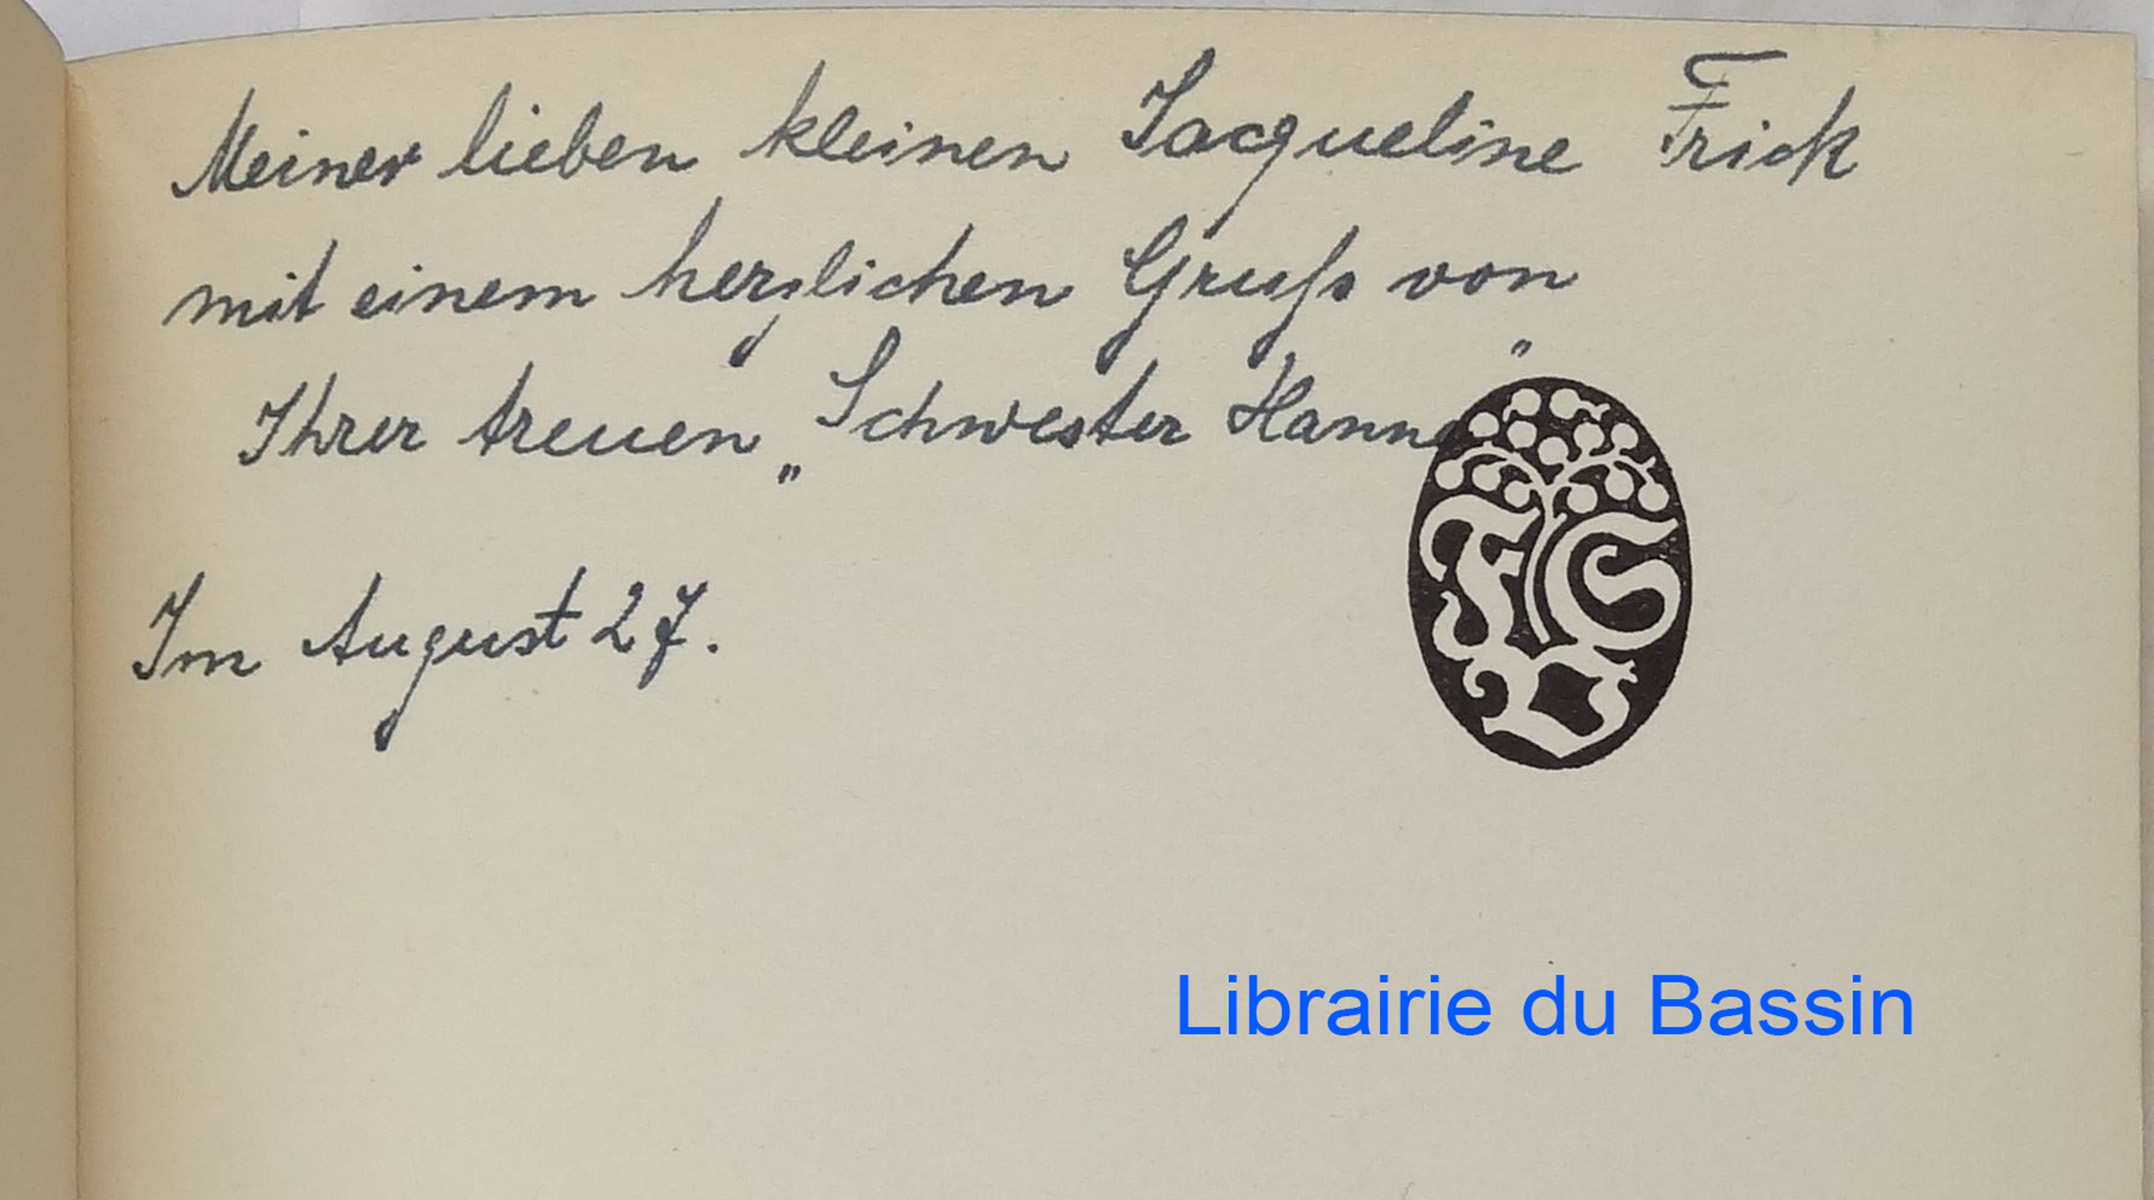 Meiner lieben kleinen Jacqueline Frick
mit einem herzlichen Gruß von
Ihrer treuen „Schwester Hanne"
Im August 27.
Librairie du Bassin